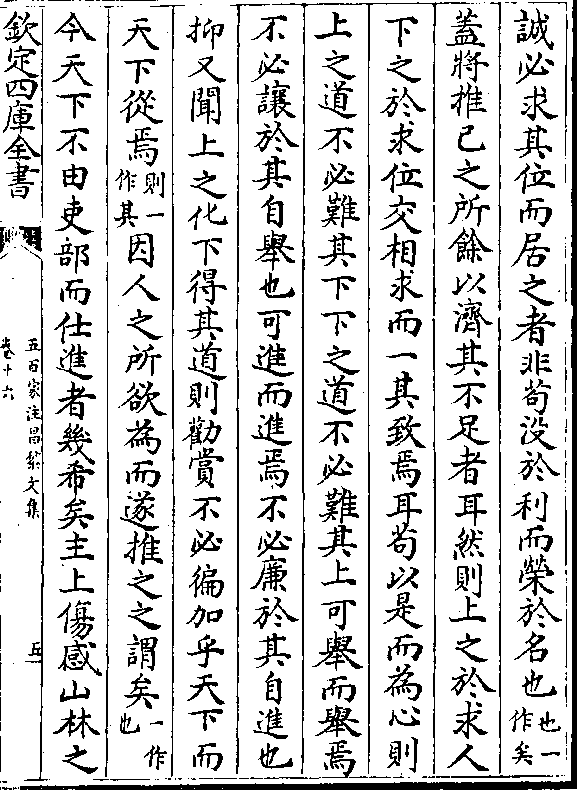 誠必求其位而居之者非苟没於利而榮於名也也一作矣
蓋將推已之所餘以濟其不足者耳然則上之於求人
下之於求位交相求而一其致焉耳苟以是而為心則
上之道不必難其下下之道不必難其上可舉而舉焉
不必讓於其自舉也可進而進焉不必廉於其自進也
抑又聞上之化下得其道則勸賞不必徧加乎天下而
天下從焉則一作其因人之所欲為而遂推之之謂矣一作也
今天下不由吏部而仕進者幾希矣主上傷感山林之
欽定四庫全書
五百家注昌黎文集
卷十六
五